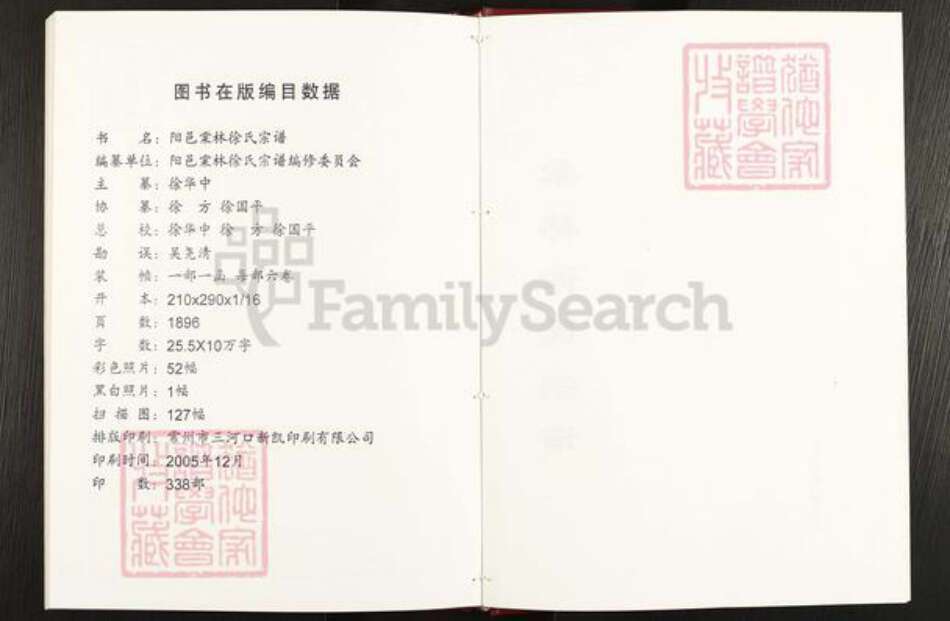 图书在版编目数据
书 名：阳邑棠林徐氏宗谱
编纂单位：阳邑棠林徐氏宗谱编修委员会
主 纂：徐华中
协 纂：徐 方 徐国平
总 校：徐华中 徐 方 徐国平
勘 误：吴尧清
装 帧：一部一函 每部六卷
开 本：210x290x1/16
页 数：1896
字 数：25.5X10万字
彩色照片：52幅
黑白照片：1幅
扫 描 图：127幅
排版印刷：常州市三河口新凯印刷有限公司
印刷时间：2005年12月
印 数：338部
FamilySearch
猶他家
譜學會
收藏
猶他家
譜學會
收藏